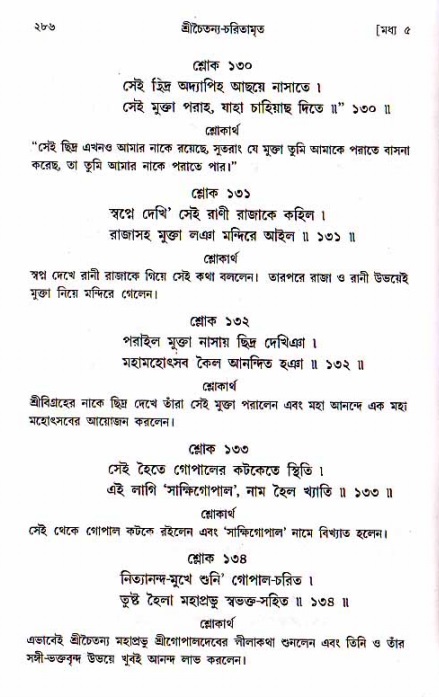 ২৮৬ শ্রীচৈতন্য-চরিতামৃত [মধ্য ৫
শ্লোক ১৩০
সেই ছিদ্র অদ্যাপিহ আছয়ে নাসাতে ।
সেই মুক্তা পরাহ, যাহা চাহিয়াছ দিতে ॥” ১৩০ ॥
শ্লোকার্থ
“সেই ছিদ্র এখনও আমার নাকে রয়েছে, সুতরাং যে মুক্তা তুমি আমাকে পরাতে বাসনা
করেছ, তা তুমি আমার নাকে পরাতে পার।”
শ্লোক ১৩১
স্বপ্নে দেখি’ সেই রাণী রাজাকে কহিল ।
রাজাসহ মুক্তা লঞা মন্দিরে আইল ॥ ১৩১ ॥
শ্লোকার্থ
স্বপ্ন দেখে রানী রাজাকে গিয়ে সেই কথা বললেন। তারপরে রাজা ও রানী উভয়েই
মুক্তা নিয়ে মন্দিরে গেলেন।
শ্লোক ১৩২
পরাইল মুক্তা নাসায় ছিদ্র দেখিঞা ।
মহামহোৎসব কৈল আনন্দিত হঞা ॥ ১৩২ ॥
শ্লোকার্থ
শ্রীবিগ্রহের নাকে ছিদ্র দেখে তাঁরা সেই মুক্তা পরালেন এবং মহা আনন্দে এক মহা
মহোৎসবের আয়োজন করলেন।
শ্লোক ১৩৩
সেই হৈতে গোপালের কটকেতে স্থিতি ।
এই লাগি ‘সাক্ষিগোপাল’, নাম হৈল খ্যাতি ॥ ১৩৩ ॥
শ্লোকার্থ
সেই থেকে গোপাল কটকে রইলেন এবং ‘সাক্ষিগোপাল’ নামে বিখ্যাত হলেন।
শ্লোক ১৩৪
নিত্যানন্দ-মুখে শুনি’ গোপাল-চরিত ।
তুষ্ট হৈলা মহাপ্রভু স্বভক্ত-সহিত ॥ ১৩৪ ॥
শ্লোকার্থ
এভাবেই শ্রীচৈতন্য মহাপ্রভু শ্রীগোপালদেবের লীলাকথা শুনলেন এবং তিনি ও তাঁর
সঙ্গী-ভক্তবৃন্দ উভয়ে খুবই আনন্দ লাভ করলেন।